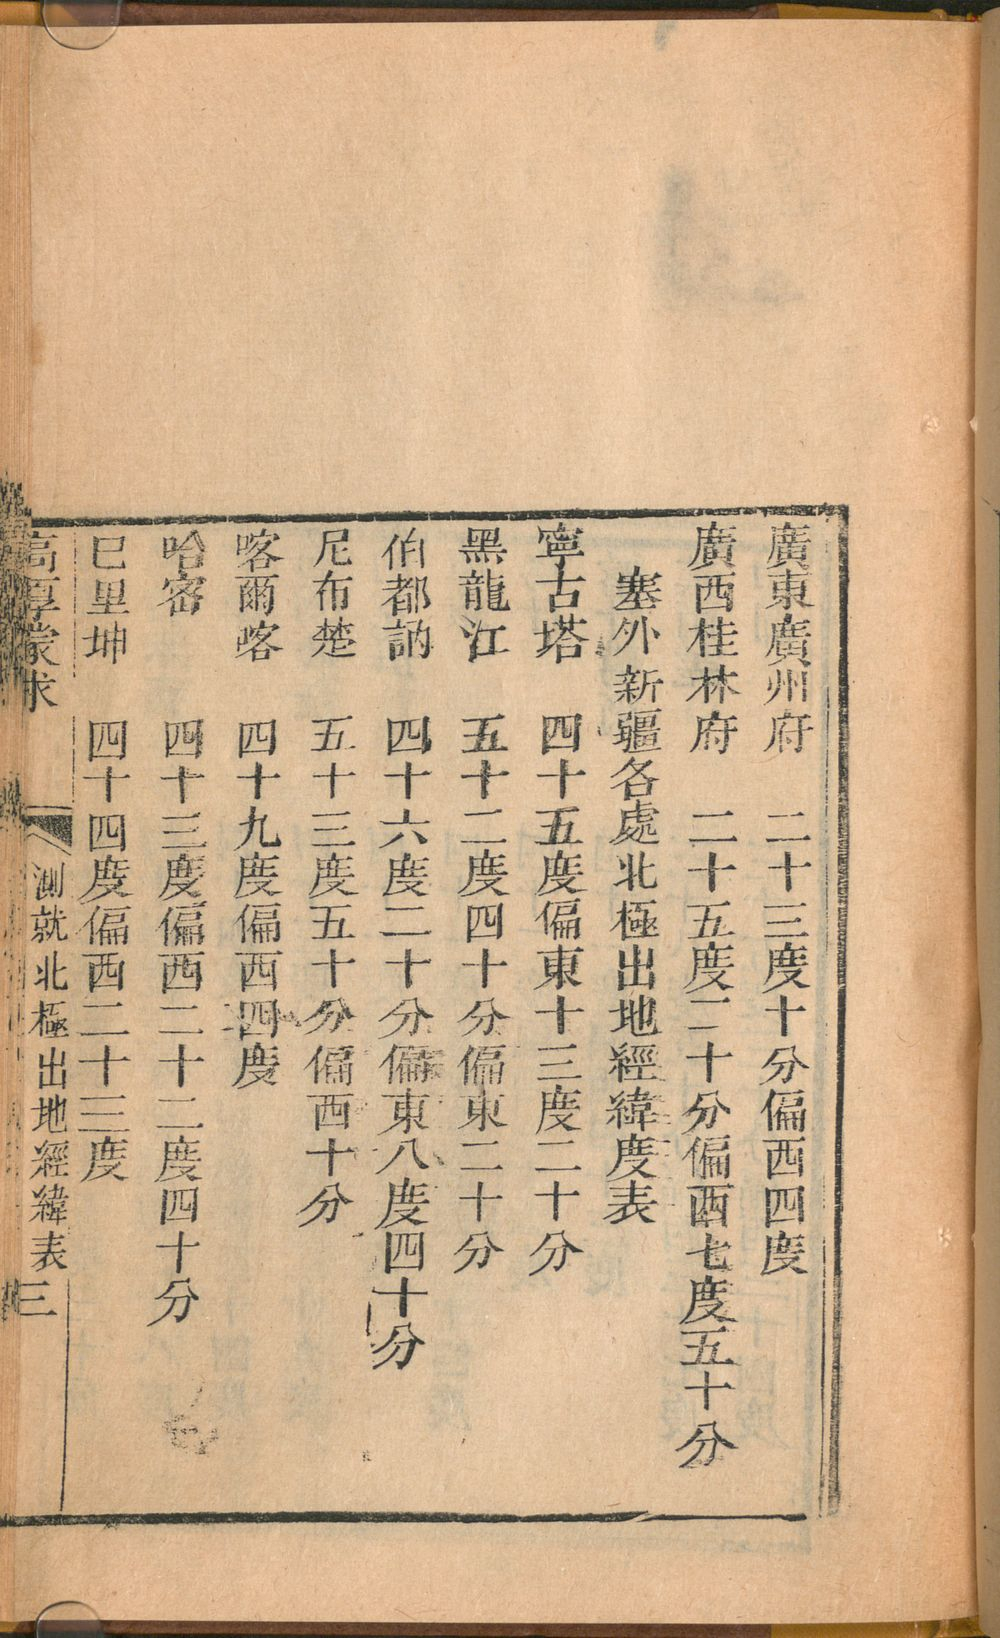 廣東廣州府　二十三度十分偏西四度
廣西桂林府　二十五度二十分偏西七度五十分
塞外新疆各處北極出地經緯度表
寧古塔　四十五度偏東十三度二十分
黑龍江　五十二度四十分偏東二十分
伯都訥　四十六度二十分偏東八度四十分
尼布楚　五十三度五十分偏西十分
喀爾喀　四十九度偏西四度
哈密　四十三度偏西二十二度四十分
巴里坤　四十四度偏西二十三度
高厚蒙求　測就北極出地經緯表　三